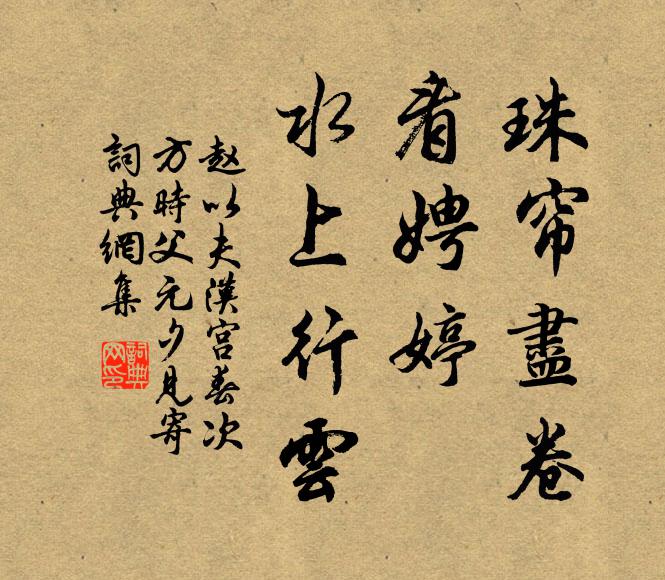 珠帘盡卷
看娉婷
水上行雲
赵以夫漢宫春次
方時父元夕見寄
詞典網集
詞典网印